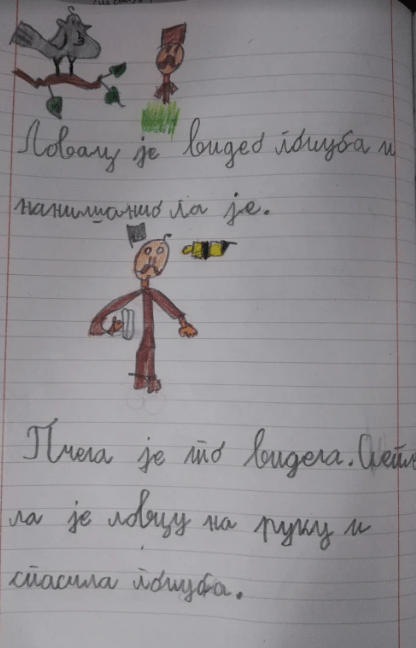 Ловац је видео голуба и
нанишанио га је.
Пчела је то видела. Слети
ла је ловцу на руку и
спасила голуба.